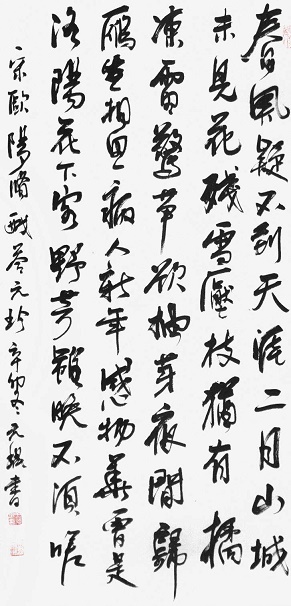 春風疑不到天涯二月山城
未見花殘雪壓枝猶有橘
凍雷驚笋欲抽芽夜聞歸
鴈生相思病入新年感物華曾是
洛陽花下客野芳雖晚不須嗟
宋歐陽脩戲答元珍辛卯冬元書